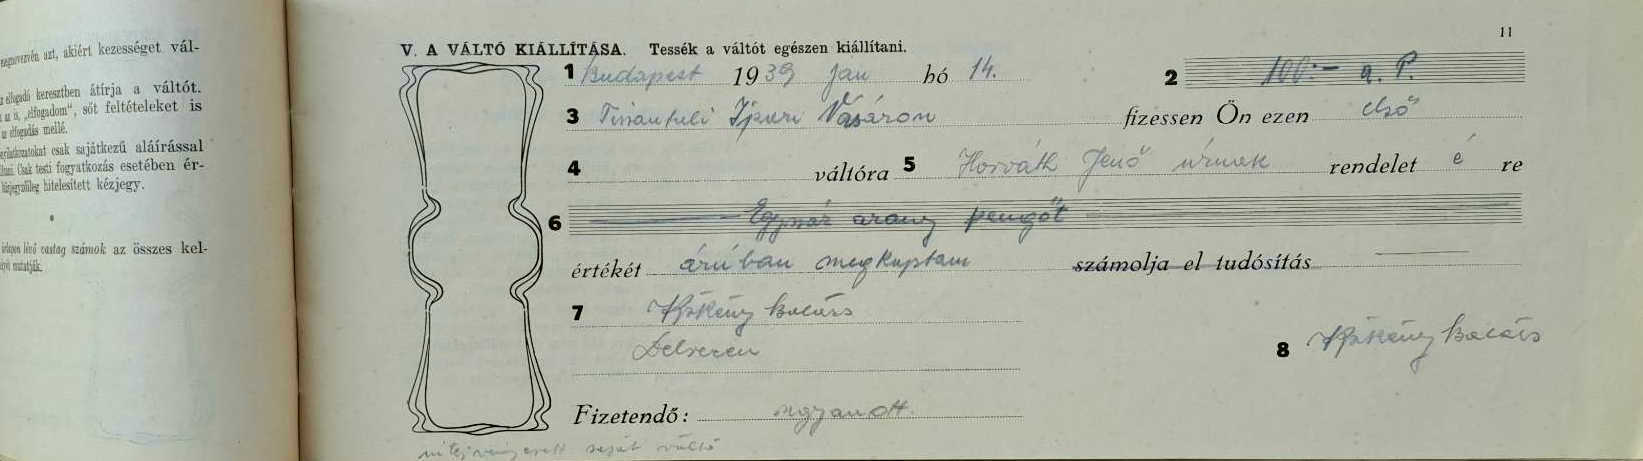 megnevezvén azt, akiért kezességet vál-
keresztben átírja a váltót.
„elfogadom“, sőt feltételeket is
az elfogadás mellé.
csak sajátkezű aláírással
Csak testi fogyatkozás esetében ér-
hitelesített kézjegy.
lévő vastag számok az összes kel-
mutatják.
11
V. A VÁLTÓ KIÁLLÍTÁSA. Tessék a váltót egészen kiállítani.
1 Budapest 1939 jan hó 14. 2 100:– a. P.
3 Tiszántúli Ipari Vásáron fizessen Ön ezen első
4 váltóra 5 Horváth Jenő úrnak rendelet é re
6 Egyszáz arany pengőt
értékét áruban megkaptam számolja el tudósítás
7 Kökény Balázs
Debrecen 8 Kökény Balázs
Fizetendő: ugyanott.
saját váltó